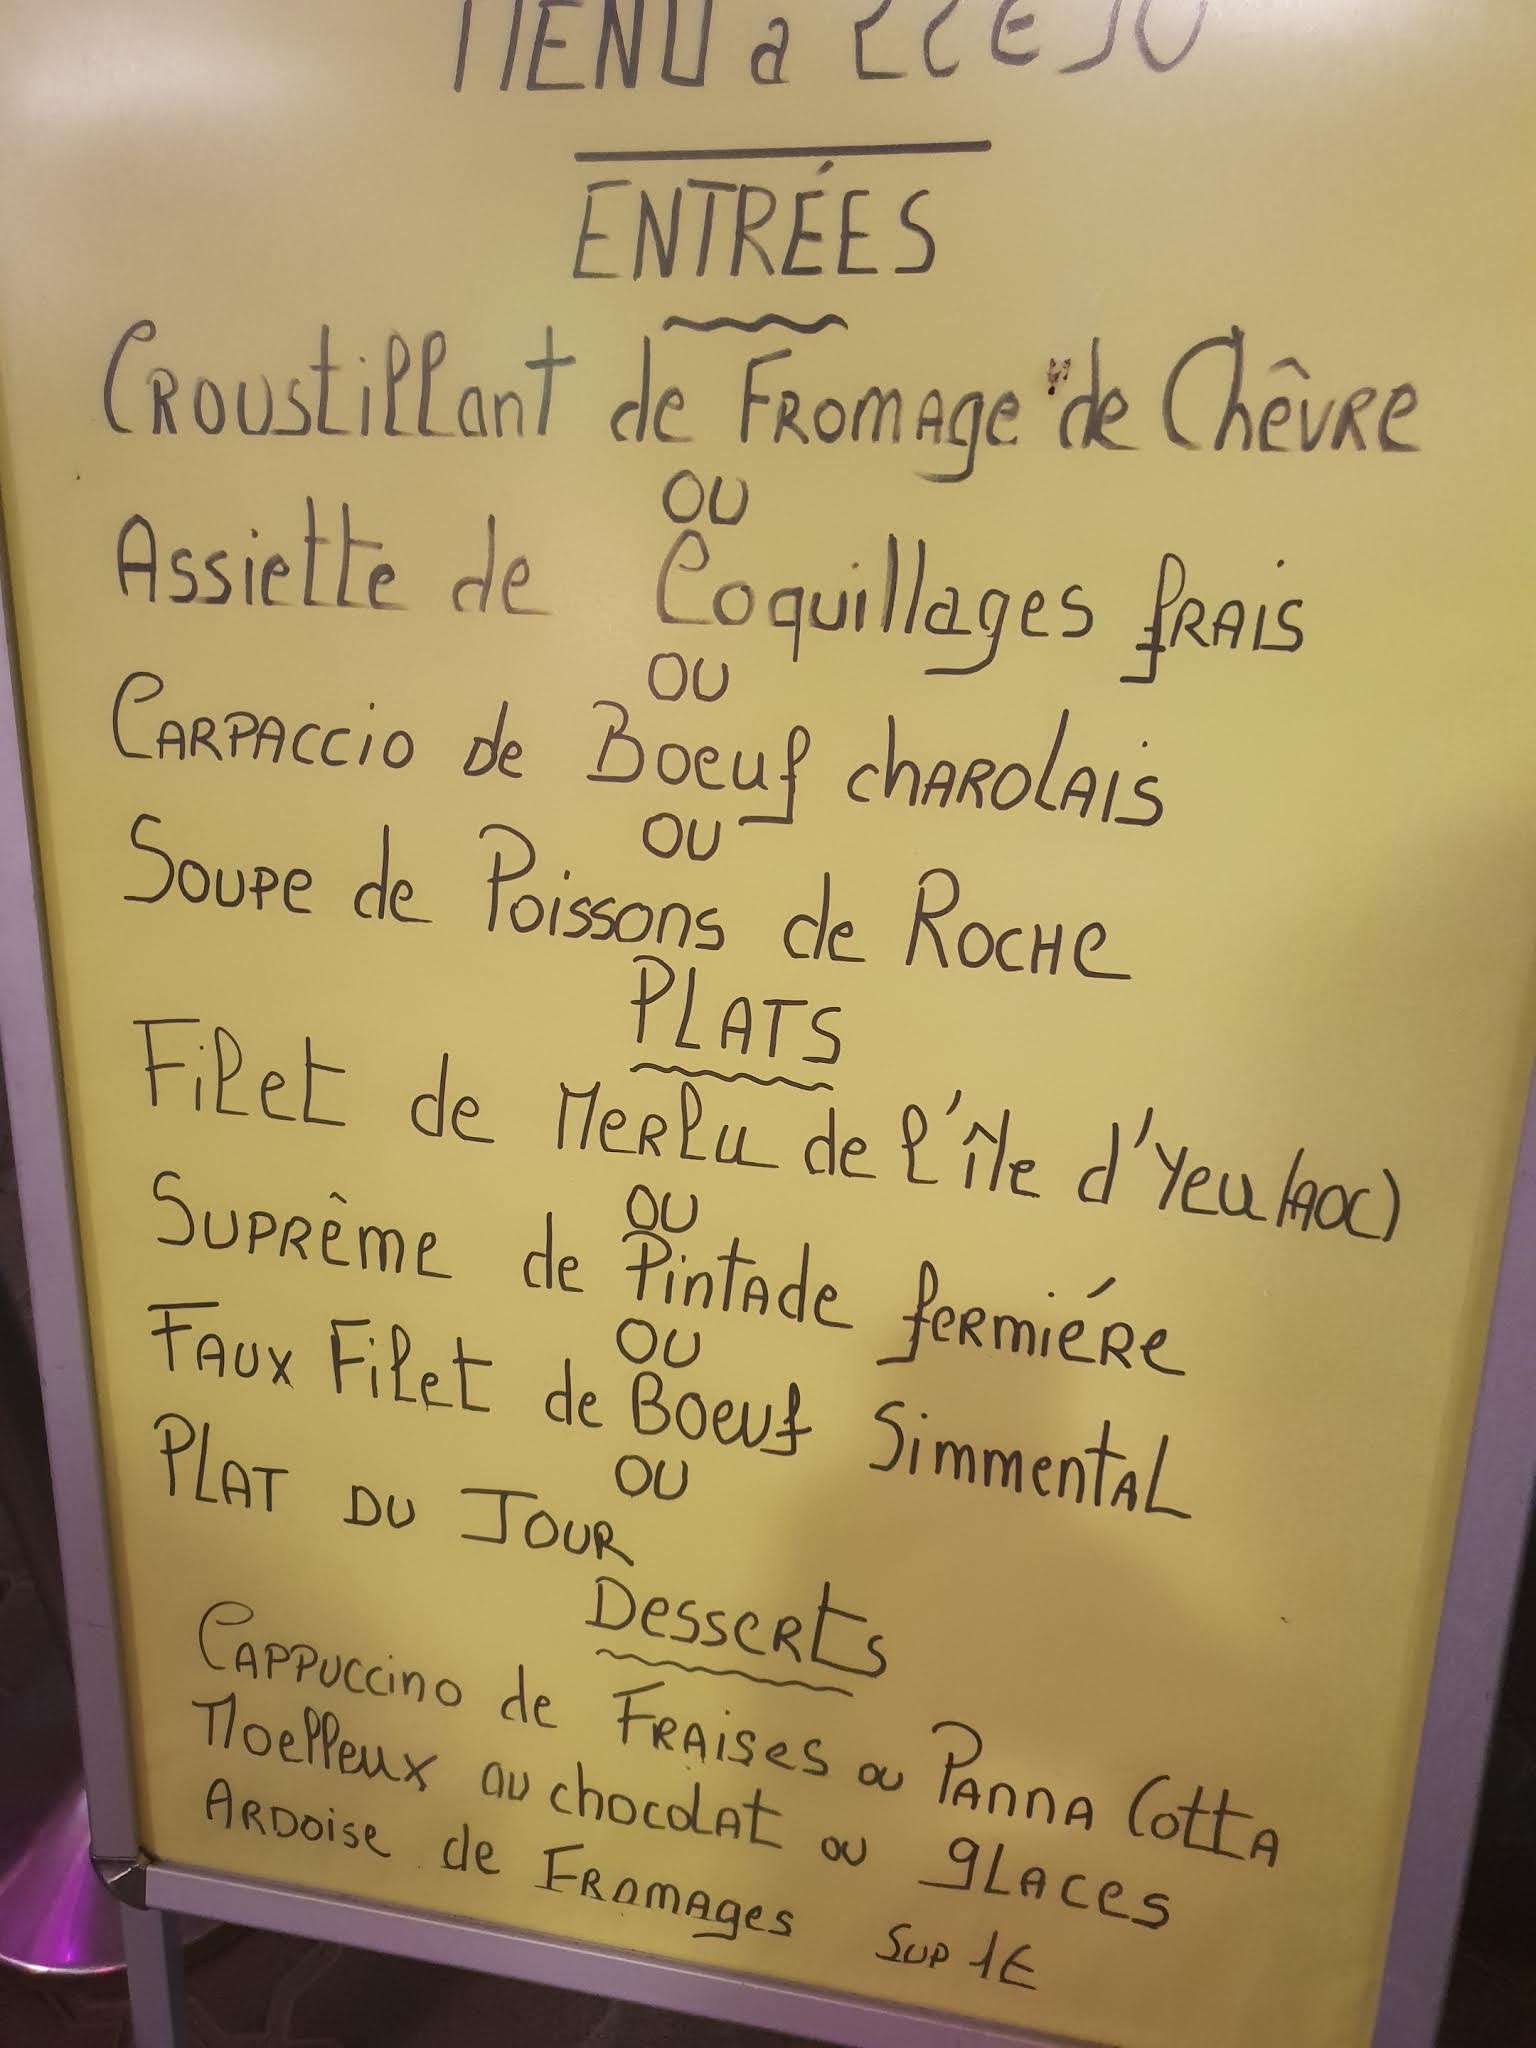 MENU à 22€50
ENTRÉES
Croustillant de Fromage de Chêvre
OU
Assiette de Coquillages frais
OU
Carpaccio de Boeuf charolais
OU
Soupe de Poissons de Roche
PLATS
Filet de Merlu de l'île d'Yeu (AOC)
OU
Suprême de Pintade fermiére
OU
Faux Filet de Boeuf Simmental
OU
PLAT DU JOUR
Desserts
Cappuccino de Fraises ou Panna Cotta
Moelleux au chocolat ou glaces
Ardoise de Fromages Sup 1€